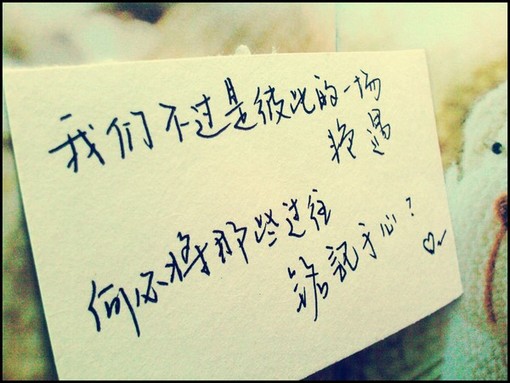 我们不过是彼此的一场
艳遇
何必将那些过往
铭記于心?